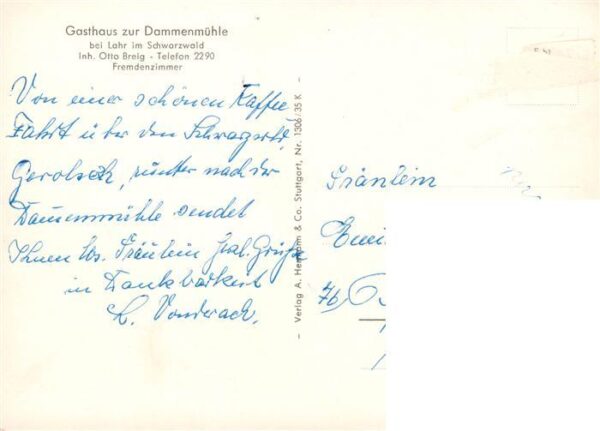 Gasthaus zur Dammenmühle
bei Lahr im Schwarzwald
Inh. Otto Breig - Telefon 2290
Fremdenzimmer
Von einer schönen Kaffee
Fahrt über den Schwarzwld,
Geroldseck, runter nach der
Dammenmühle sendet
Ihnen lbs. Fräulein herzl. Grüße
in Dankbarkeit
L. Vonderach.
- Verlag A. He & Co., Stuttgart, Nr. 1306/35 K -
Fräulein
76